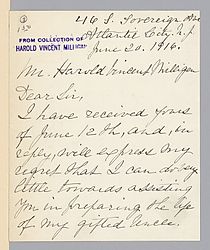 46 S. Sovereign Ave
Atlantic City, N.J.
June 20, 1916.
FROM COLLECTION OF
HAROLD VINCENT MILLIGAN
Mr. Harold Vincent Milligan
Dear Sir,
I have received yours
of June 12th, and, in
reply, will express my
regret that I can do very
little towards assisting
you in preparing the life
of my gifted uncle.